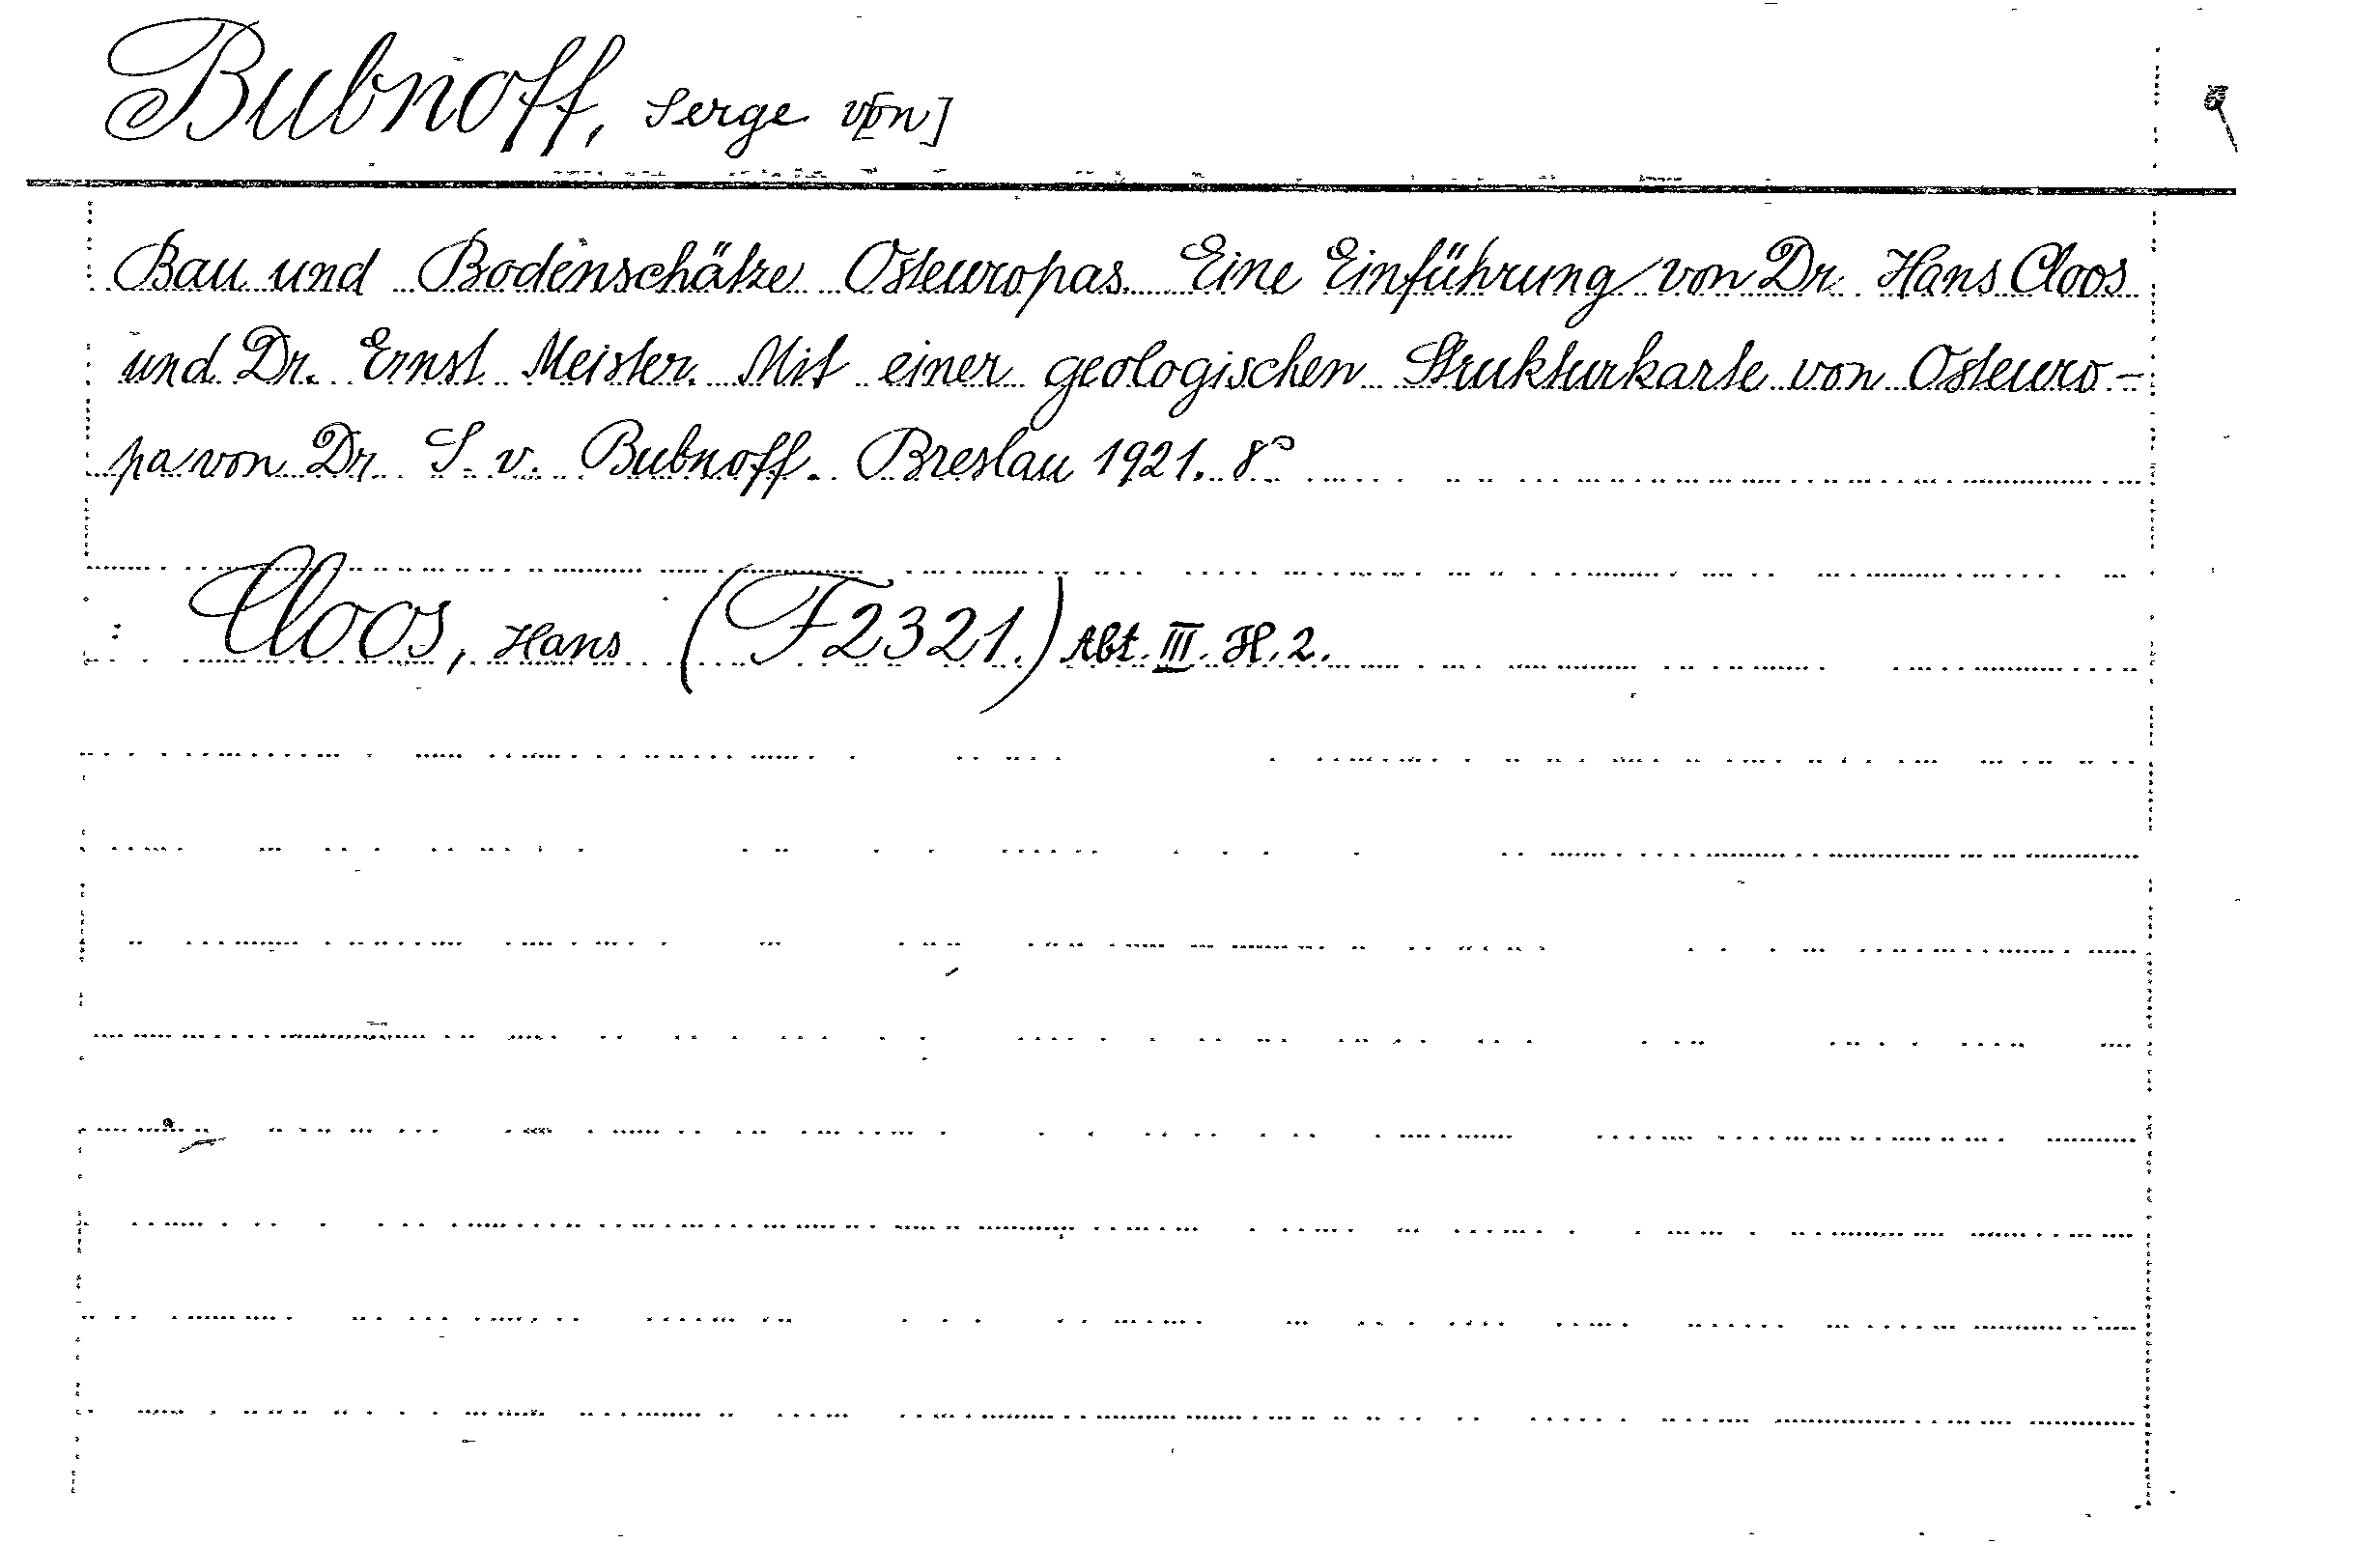 Bubnoff, Serge v[on]
Bau und Bodenschätze Osteuropas. Eine Einführung von Dr. Hans Cloos
und Dr. Ernst Meister. Mit einer geologischen Strukturkarte von Osteuro-
pa von Dr. S. v. Bubnoff. Breslau 1921. 8°
Cloos, Hans (F2321.) Abt. III. H. 2.